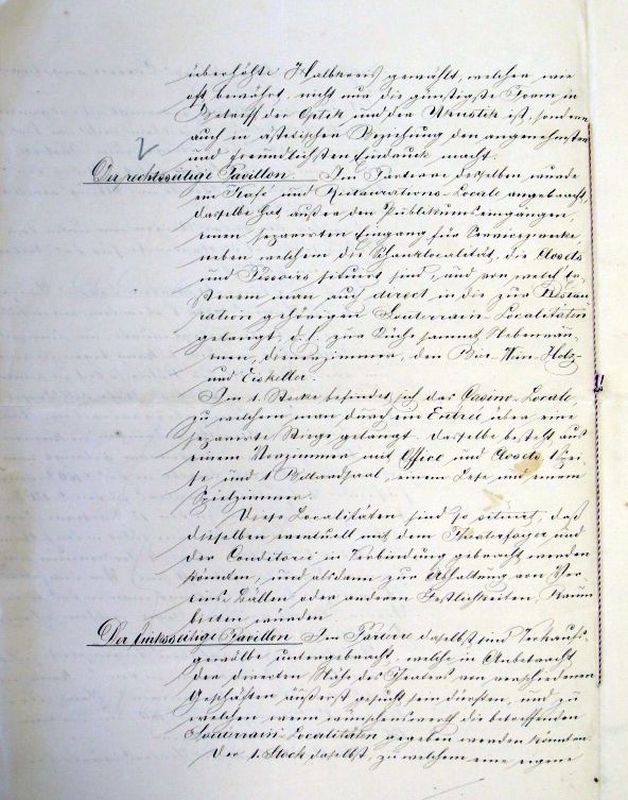 überhöhte Halbkreis gewählt, welcher wie
oft bewährt nicht nur die günstigste Form in
Betreff der Optik und der Akustik ist, sondern
auch in ästetischer Beziehung den angenehmsten
und freundlichsten Eindruck macht.
Der rechtsseitige Pavillon. Im Parterre desselben wurde
ein Kafé und Restaurations-Locale angebracht,
dasselbe hat außer den Publikumseingängen,
einen separirten Eingang für Servicezwecke
neben welchem die Schanklocalität, die Closets
und Pissoirs situirt sind, und von welch
man auch direct in die zur Restau-
ration gehörigen Souterrain-Localitäten
gelangt, d. i. zur Küche sammt Nebenräu-
men, Dienerzimmer, den Bier- Wein- Holz-
und Eiskeller.
Im 1. Stocke befindet sich das Casino-Locale,
zu welchem man durch ein Entrée über eine
separirte Stiege gelangt. Dasselbe besteht aus
einem Vorzimmer mit Office und Closets, 1 Spei-
se und 1 Billardsaal, einem Lese und einem
Spielzimmer.
Diese Localitäten sind so situirt, daß
dieselben eventuell mit dem Theaterfoyer und
der Conditorei in Verbindung gebracht werden
könnten, und alsdann zur Abhaltung von Ver-
eins-Bällen oder anderen Festlichkeiten Raum
bieten würden
Der linksseitige Pavillon Im Parterre daselbst sind Verkaufs-
gewölbe untergebracht, welche in Anbetracht
der directen Nähe des Theaters von verschiedenen
Geschäften äußerst gesucht sein dürften, und zu
welchen wenn wünschenswerth die betreffenden
Souterrain-Localitäten gegeben werden könnten.
Der 1. Stock daselbst, zu welchem eine eigene